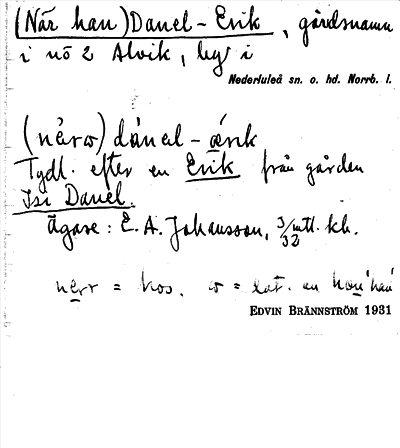 (När han) Danel-Erik, gårdsnamn
i nö 2 Alvik, by i
Nederluleå sn. o. hd. Norrb. l.
(nèrω) dánel-ǽrik
Tydl. efter en Erik från gården
Isi Danel.
Ägare: E. A. Johansson, 3/32 mtl. kh.
nerr = hos. ω = eat. an hon 'han'
EDVIN BRÄNNSTRÖM 1931